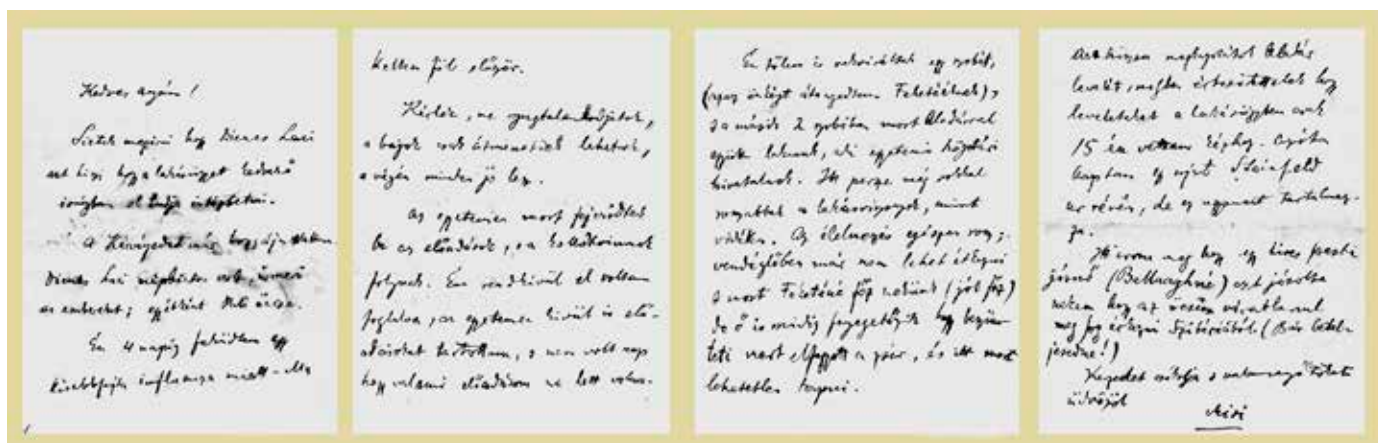 Kedves anyám!
Sietek megírni hogy Dienes Laci
azt hiszi hogy a lakásügyet kedvező
irányban el tudja intéztetni.
A kérvényedet még
Dienes Laci népbiztos volt, ismeri
az embereket; egyébként öccse.
Én 4 napig feküdtem egy
kisebbfajta influenza miatt - Ma
keltem föl először.
Kérlek, ne nyugtalankodjatok,
a bajok csak átmenetiek lehetnek,
a végén minden jó lesz.
Az egyetemen most fejeződtek
be az előadások, s a kollokviumok
folynak. Én rendkívül el voltam
foglalva, az egyetemen kívül is elő-
adásokat tartottam, s nem volt nap
hogy valami előadásom ne lett volna.
Én tőlem is rekviráltak egy szobát,
átengedtem Feketéének),
s a másik 2 szobában most Aladárral
együtt lakunk, aki egyetemi könyvtári
hivatalnok. Itt persze még sokkal
rosszabbak a lakásviszonyok, mint
vidéken. Az élelmezés egészen rossz;
vendéglőben már nem lehet étkezni
s most Feketéné főz nekünk (jól főz)
de ő is mindig fenyegetőzik hogy beszün-
teti mert elfogyott a és itt most
lehetetlen kapni.
Azt hiszem megkaptátok Aladár
levelét, melyben értesítettelek hogy
leveleteket a lakásügyben csak
15 én vettem kézhez. Azóta
kaptam egy újat Steinfeld
úr révén, de ez ugyanazt tartalmaz-
za.
Itt írom meg hogy egy híres pesti
jósnő (Bellwaghné) azt jósolta
nekem hogy az öcsém váratlanul
meg fog érkezni Szibériából (Bár betel-
jesedne!)
Kezedet csókolja s
üdvözöl
Misi